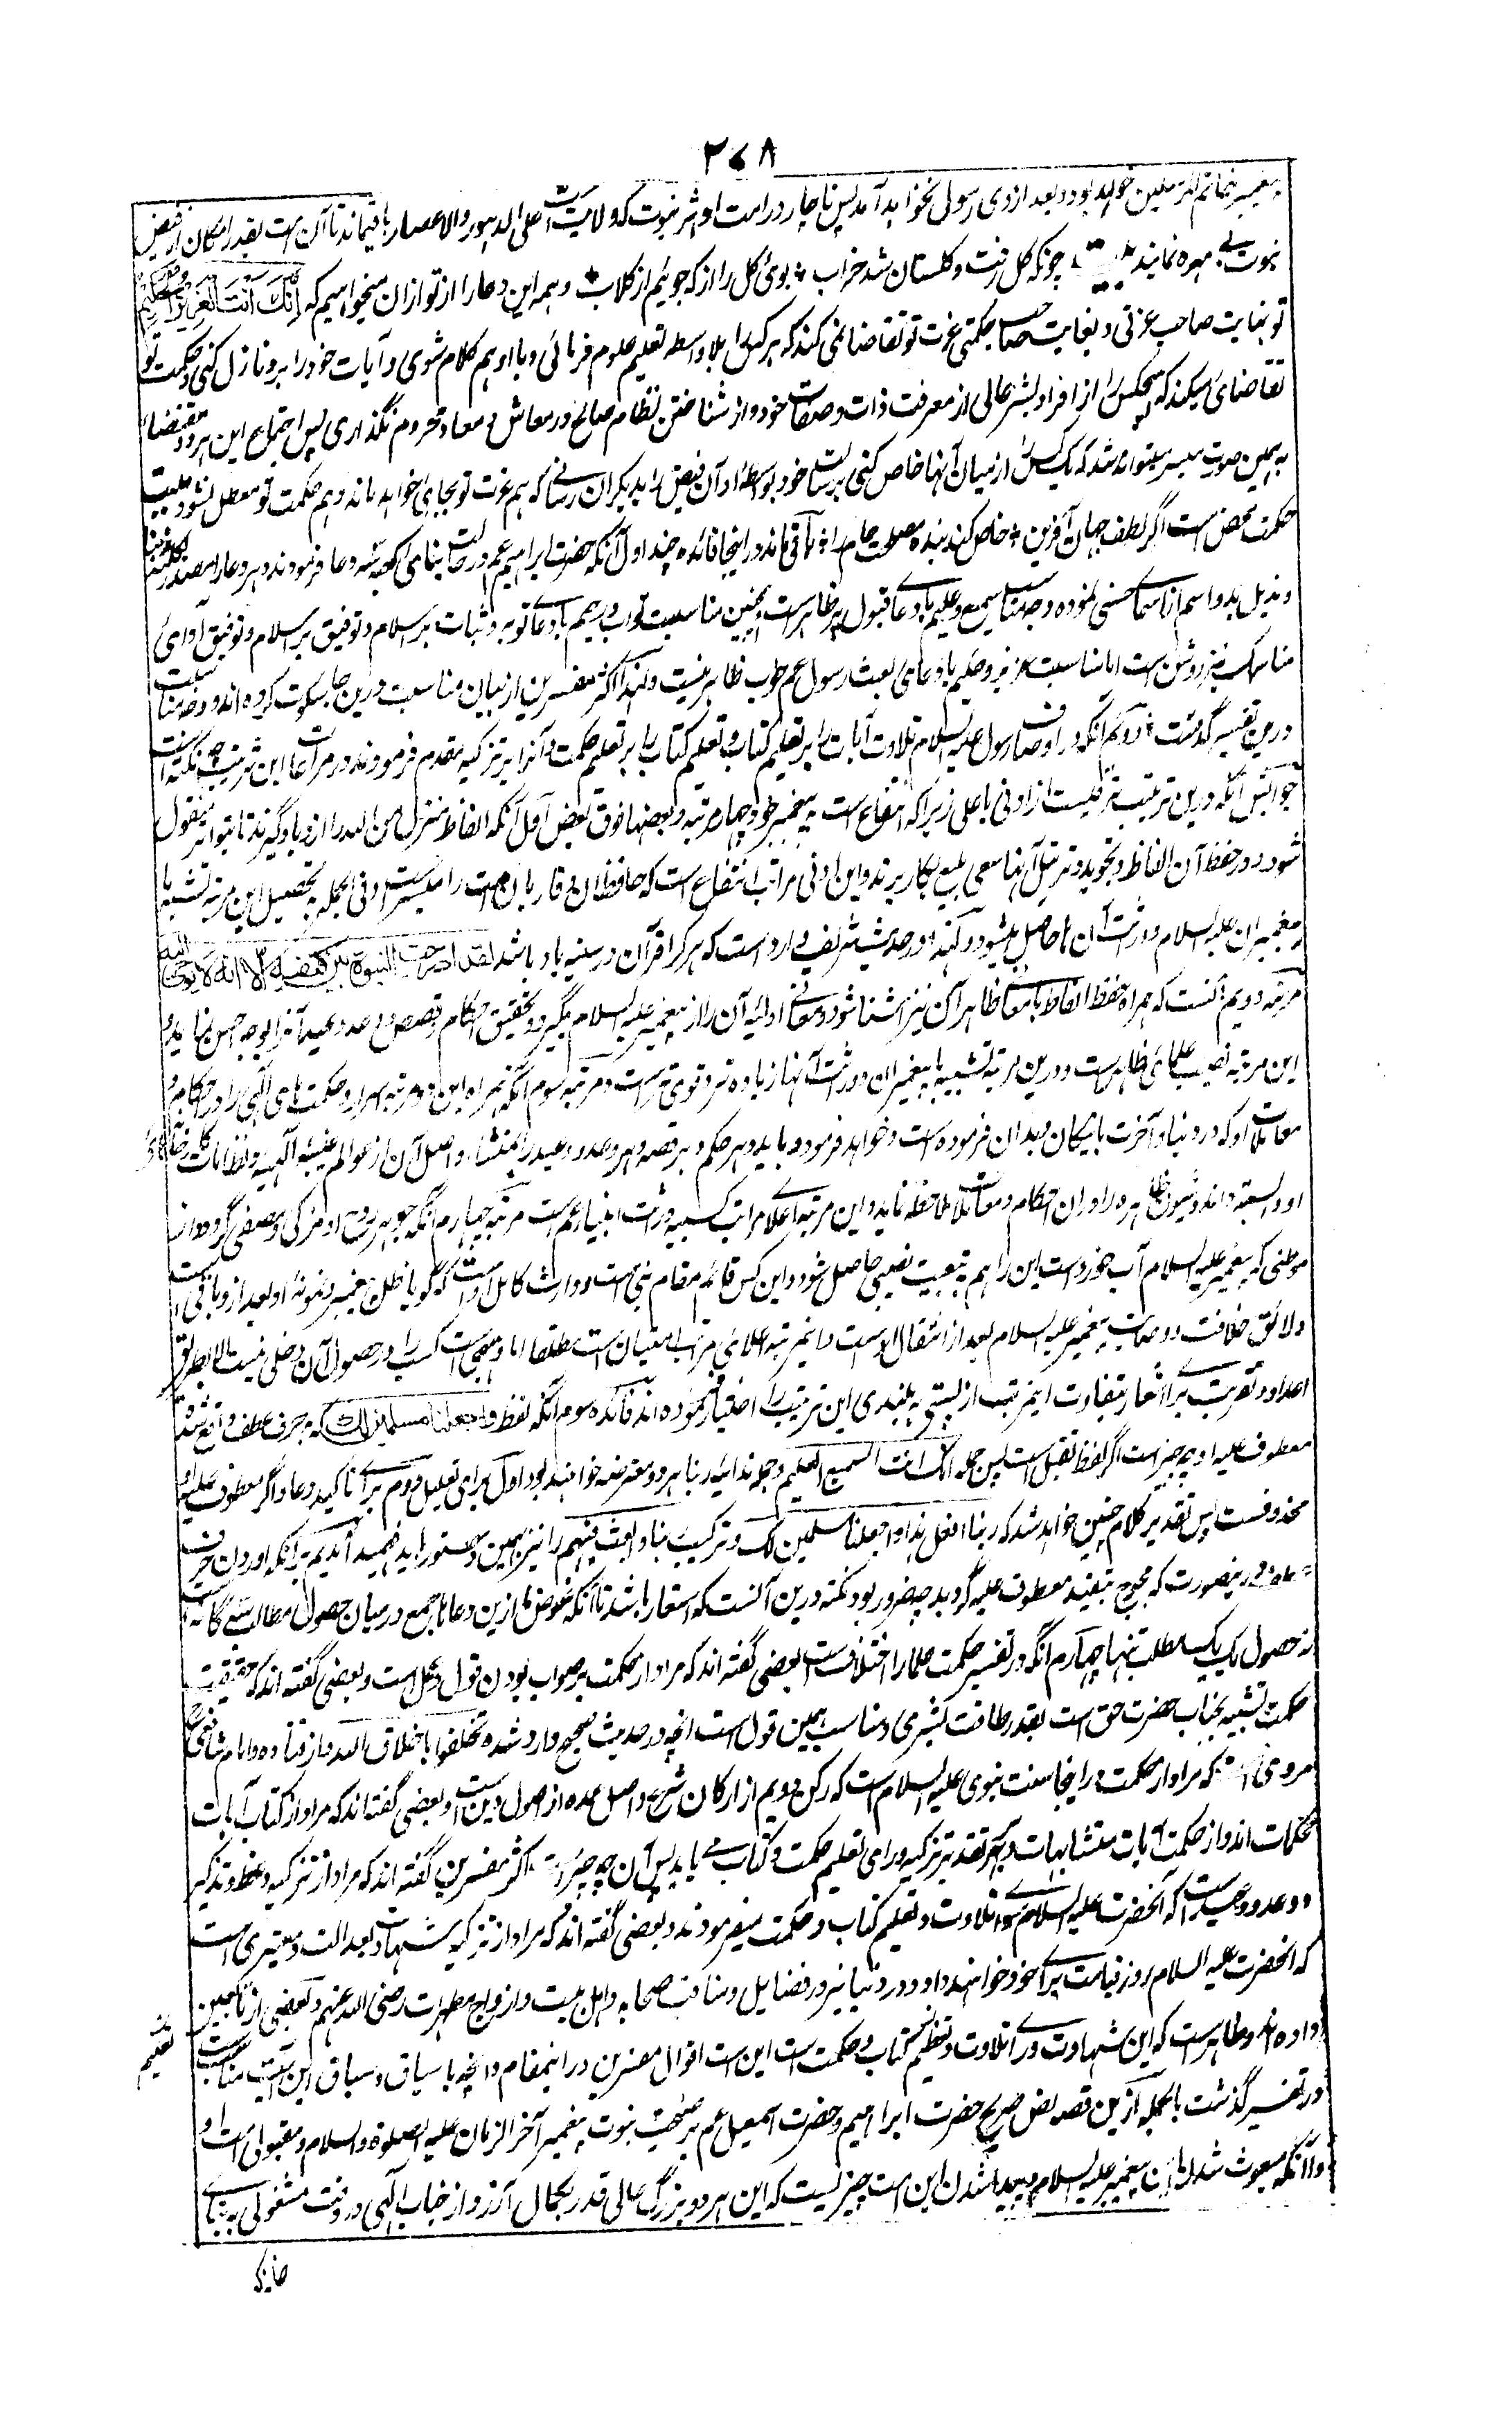 ۳۷۸
پیغمبر خاتم المرسلین خواهد بود و بعد از وی رسولی نخواهد آمد پس ناچار در امت او اثر نبوت که ولایت است علی الدهور والاعصار باقیماند تا آن امت بقدر امکان از فیض
نبوت بی بهره نمانند بیت چونکه گل رفت و گلستان شد خراب * بوی گل را از که جوئیم از گلاب * و همه این دعا را از تو ازان میخواهیم که اِنَّكَ اَنْتَ الْعَزِیْزُ الْحَكِیْمُ
تو بنهایت صاحب عزتی و بغایت صاحب حکمتی عزت تو تقاضا نمی کند که هر کس را بلاواسطه تعلیم علوم فرمائی و با او هم کلام شوی و آیات خود را برو نازل کنی و حکمت تو
تقاضای میکند که هیچکس را از افراد بشر عالی از معرفت ذات و صفات خود و از شناختن نظام صالح در معاش و معاد محروم نگذاری پس اجتماع این هر دو مقتضا
به همین صورت میسر میتواند شد که یک کس را از میان آنها خاص کنی برسالت خود و بواسطه او آن فیض را بدیگران رسانی که هم عزت تو بجای خواهد ماند و هم حکمت تو معطل نشود بیت
حکمت محض است اگر لطف جهان آفرین * خاص کند بنده مصلحت عام را * باقی ماند در اینجا فائده چند اول آنکه حضرت ابراهیم عم در حالت بنای کعبه سه دعا فرمودند و هر دعا را مصدر بکلمه ربنا
و مذیل بدو اسم از اسمای حسنی نموده وجه مناسبت سمیع و علیم با دعای قبول پر ظاهر است و همچنین مناسبت تواب و رحیم با دعای توبه و ثبات بر اسلام و توفیق بر اسلام و توفیق آدای
مناسک نیز روشن است اما مناسبت عزیز و حکیم با دعای بعث رسول عم خوب ظاهر نیست و لهذا اکثر مفسرین از بیان مناسبت درین جا سکوت کرده اند و وجه مناسبت
درین تفسیر گذشت * دوم آنکه در اوصاف رسول علیه السلام تلاوت آیات را بر تعلیم کتاب و تعلیم کتاب را بر تعلیم حکمت و آنرا بر تزکیه مقدم فرمودند در مراعات این ترتیب چه نکته است
جوابش آنکه درین ترتیب ترقیست از ادنی باعلی زیرا که انتفاع امت به پیغمبر خود چهار مرتبه و بعضها فوق بعض اول آنکه الفاظ منزل من الله را ازو یاد گیرند تا بتواتر منقول
شود و در حفظ آن الفاظ و تجوید و ترتیل آنها سعی بلیغ بکار برند و این ادنی مراتب انتفاع است که حافظان و قاریان امت را میسر است و فی الجمله بتحصیل این مرتبه تشبه با
پیغمبران علیه السلام و وراثت آن ها حاصل میشود و لهذا در حدیث شریف وارد است که هر کرا قرآن در سینه یاد باشد لقد ادرجت النبوة بین کتفیه الا انه لا یوحی الیه
مرتبه دویم آنست که همراه حفظ الفاظ با معانی ظاهر آن نیز آشنا شود و معانی اولیه آن را از پیغمبر علیه السلام بگیرد و تحقیق احکام و قصص و وعد و وعید آنرا بوجه احسن نماید و
این مرتبه نصیب علمای ظاهر است و درین مرتبه تشبیه با پیغمبران و وراثت آنها زیاده تر و قوی تر است و مرتبه سوم آنکه همراه این دو مرتبه اسرار و حکمت های الهی را در احکام و
معاملات او که در دنیا و آخرت با نیکان و بدان فرموده است و خواهد فرمود دریابد و هر حکم و هر قصه و هر وعد و وعید را بمنشاء و اصل آن از عوالم غیبیه الهیه و نظامات کارخانهای
او وابسته داند و شیون ظاهره را دران احکام و معاملات ملاحظه نماید و این مرتبه اعلای مراتب کسبیه وراثت انبیاء عم است مرتبه چهارم آنکه جوهر روح او مزکی و مصفی گردد و از
موطنی که پیغمبر علیه السلام آب خورده است این را هم به تبعیت نصیبی حاصل شود و این کس قائم مقام نبی است و وارث کامل اوست که گویا ظل پیغمبر و نمونه او بعد ازو باقی است
و لائق خلافت و وصایت پیغمبر علیه السلام بعد از انتقال اوست و این مرتبه اعلای مراتب امتیان است مطلقا اما وهبی است کسب را در حصول آن دخلی نیست الا بطریق
اعداد و تقریب برای اشعار بتفاوت این مرتب از پستی به بلندی این ترتیب را اختیار نموده اند فائده سوم آنکه لفظ واجعلنا مسلمین لک که به حرف عطف واقع شده
معطوف علیه او چه چیز است اگر لفظ تقبل است پس جمله انک انت السمیع العلیم و جمله ندائیه ربنا هر دو معترضه خواهند بود اول برای تعلیل دوم برای تاکید دعا و اگر معطوف علیه او
محذوفست پس تقدیر کلام چنین خواهد شد که ربنا افعل هذا واجعلنا مسلمین لک و ترکیب ربنا وابعث فیهم را نیز بهمین دستور باید فهمید آمدیم برآنکه آوردن حرف
عطف درینصورت که محوج بتقید معطوف علیه گردید چه ضرور بود نکته درین آنست که اشعار باشد تا آنکه غرض ما ازین دعاها جمع در میان حصول مطالب سه گانه است
نه حصول یک یک مطلب تنها چهارم آنکه در تفسیر حکمت علما را اختلاف است بعضی گفته اند که مراد از حکمت بر صواب بودن قول و عمل است و بعضی گفته اند که حقیقت
حکمت تشبه بجناب حضرت حق است بقدر طاقت بشری و مناسب همین قول است انچه در حدیث صحیح وارد شده تخلقوا باخلاق الله و از قتاده و امام شافعی رح
مروی است که مراد از حکمت در اینجا سنت نبوی علیه السلام است که رکن دویم از ارکان شرع و اصل عمده از اصول دین است و بعضی گفته اند که مراد از کتاب آیات
محکمات اند و از حکمت آیات متشابهات و بهر تقدیر تزکیه ورای تعلیم حکمت و کتاب می باید پس آن چه چیز است اکثر مفسرین گفته اند که مراد از تزکیه وعظ و تذکیر
و وعد و وعید است که آنحضرت علیه السلام سوای تلاوت و تعلیم کتاب و حکمت میفرمودند و بعضی گفته اند که مراد از تزکیه شهادت بعدالت و معتبری است
که آنحضرت علیه السلام روز قیامت برای امت خود خواهند داد و در دنیا نیز در فضایل و مناقب صحابه و اهل بیت و ازواج مطهرات رضی الله عنهم و بعضی از تابعین
داده اند و ظاهر است که این شهادت ورای تلاوت و تعلیم کتاب و حکمت است این است اقوال مفسرین در اینمقام و انچه با سیاق و سباق این آیت مناسبت
در تفسیر گذشت بالجمله ازین قصه نص صریح حضرت ابراهیم و حضرت اسمعیل عم بر صحت نبوت پیغمبر آخر الزمان علیه الصلوة والسلام و مقبولی امت او
و آنکه مبعوث شدن این پیغمبر علیه السلام و پیدا شدن این امت چیزیست که این هر دو بزرگ عالی قدر بکمال آرزو از جناب الهی در وقت مشغولی به بنای
خانه